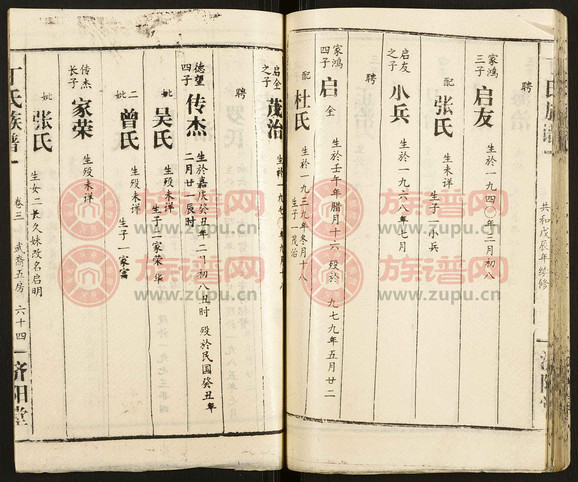 丁氏族譜
共和戊辰年续修
聘
家鸿三子
启友
生於一九四〇年二月初八
配
张氏
生未详
生子一小兵
启友之子
小兵
生於一九六八年七月
聘
家鸿四子
启全
生於壬午年腊月十六 殁於一九七九年五月廿二
配
杜氏
生於一九三九年冬月十八
生子一茂治
启全之子
茂治
生於一九七
聘
德望四子
传杰
生於嘉庆癸丑年二月初八丑时 殁於民国癸丑年二月廿一辰时
妣
吴氏
生殁未详
生子二家荣 华
二妣
曾氏
生殁未详
生子一家富
传杰长子
家荣
生殁未详
妣
张氏
生女二长久妹改名启明
丁氏族譜
卷三
武斋五房
六十四
济阳堂
族谱网
www.zupu.cn
族谱网
www.zupu.cn